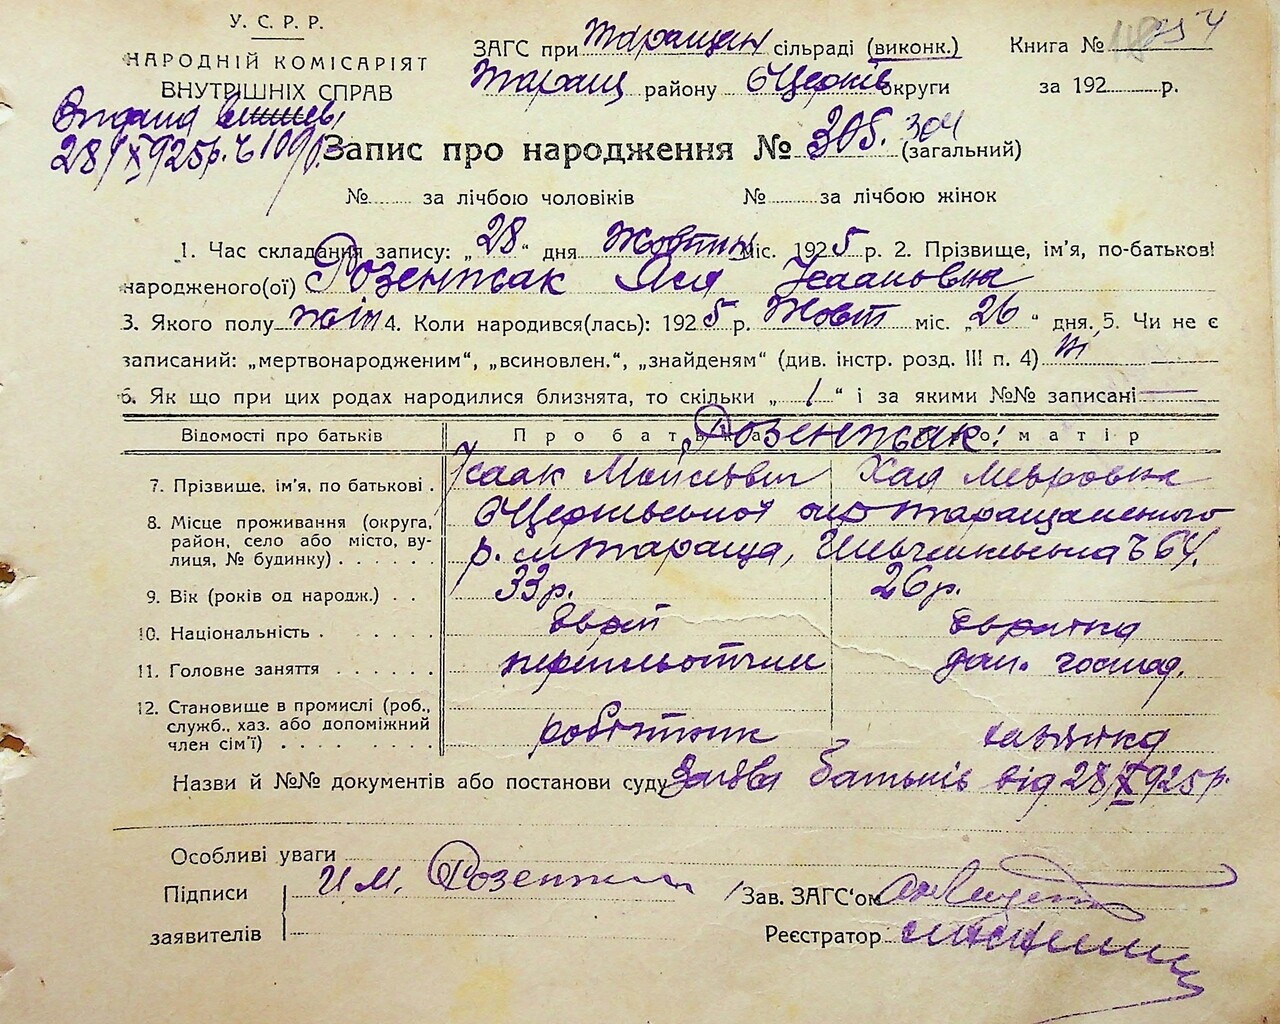 У. С. Р. Р.
НАРОДНІЙ КОМІСАРІЯТ
ВНУТРІШНІХ СПРАВ
ЗАГС при Таращан сільраді (виконк.)
Таращ району БЦерків округи
Книга №
за 192 р.
Видана
28/X 925р.
Запис про народження № 305. 304 (загальний)
№ за лічбою чоловіків № за лічбою жінок
1. Час складання запису: „28“ дня Жовтня міс. 1925 р. 2. Прізвище, ім'я, по-батькові
народженого(ої) Розенжак Ася Ісааковна
3. Якого полу жін 4. Коли народився(лась): 1925 р. Жовт міс. „26“ дня. 5. Чи не є
записаний: „мертвонародженим“, „всиновлен.“, „знайденям“ (див. інстр. розд. III п. 4) ні
6. Як що при цих родах народилися близнята, то скільки „1“ і за якими №№ записані
Відомості про батьків Про батька Про матір
Розенжак:
7. Прізвище, ім'я, по батькові . Ісаак Мойсевич Хая
8. Місце проживання (округа, район, село або місто, вулиця, № будинку) . . . . . . БЦерківської окр Таращанського
р. м Тараща, № 64.
9. Вік (років од народж.) . . 33р. 26р.
10. Національність . . . . . . Еврей Еврейка
11. Головне заняття . . . . . . дом. господ.
12. Становище в промислі (роб., служб., хаз. або допоміжний член сім'ї) . . . . . . робітник
Назви й №№ документів або постанови суду Заява батьків від 28/X 925р.
Особливі уваги
Підписи И. М. Розенжак Зав. ЗАГС'ом
заявителів Реєстратор